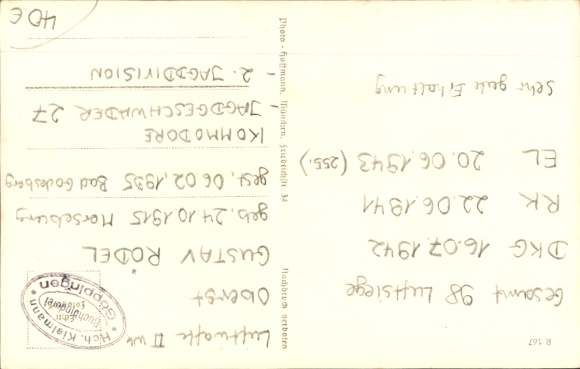 R 167
Gesamt 98 Luftsiege
DKG 16.07.1942
RK 22.06.1941
EL 20.06.1943 (255.)
Sehr gute Erhaltung
Photo-Hoffmann, München, Friedrichstr. 34
Nachdruck verboten
Luftwaffe II Wk
Oberst
GUSTAV RÖDEL
geb. 24.10.1915 Merseburg
gest. 06.02.1995 Bad Godesberg
KOMMODORE
- JAGDGESCHWADER 27
- 2. JAGDDIVISION
40 €
Hch. Kielmann
Buchbinderei
* Göppingen *